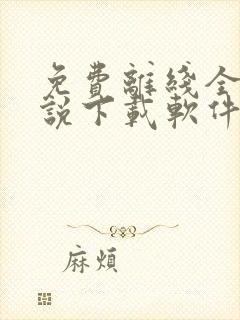 免費離綫全
説下載軟件
麻煩